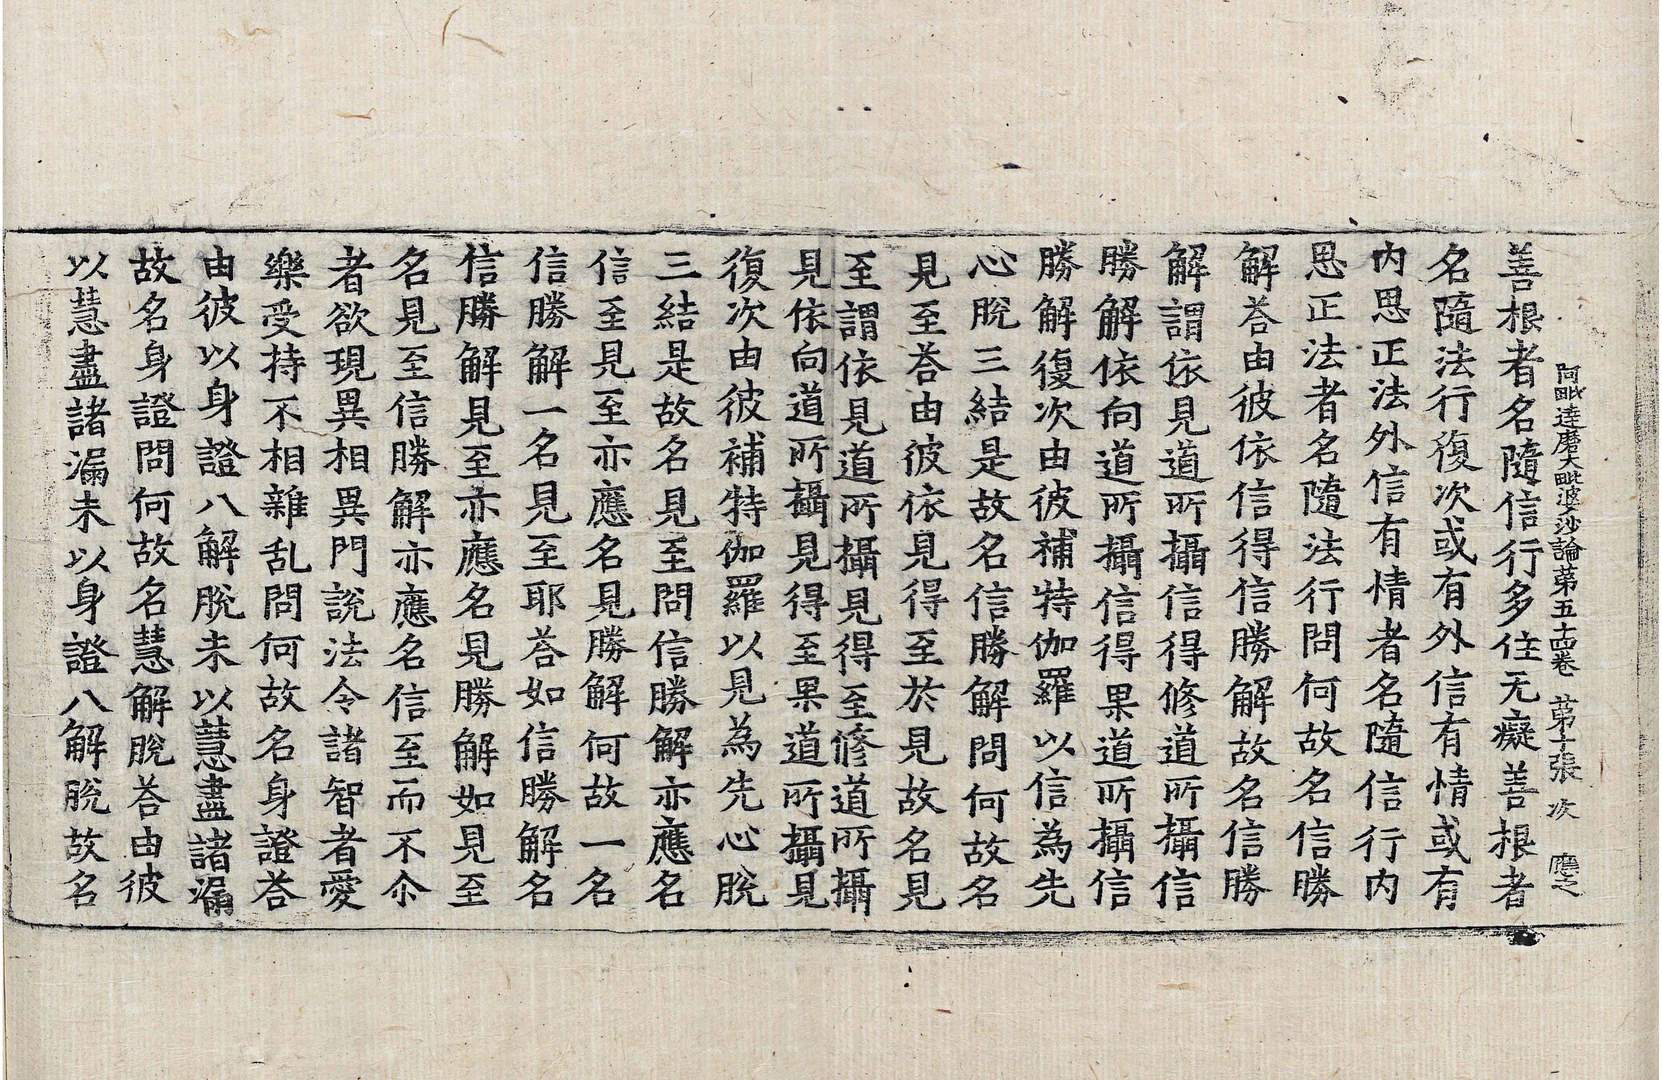 阿毗達磨大毗婆沙論第五十四卷 第十張 次 應之
善根者名隨信行多住无癡善根者
名隨法行復次或有外信有情或有
內思正法外信有情者名隨信行內
思正法者名隨法行問何故名信勝
解荅由彼依信得信勝解故名信勝
解謂依見道所攝信得修道所攝信
勝解依向道所攝信得果道所攝信
勝解復次由彼補特伽羅以信為先
心脫三結是故名信勝解問何故名
見至荅由彼依見得至於見故名見
至謂依見道所攝見得至修道所攝
見依向道所攝見得至果道所攝見
復次由彼補特伽羅以見為先心脫
三結是故名見至問信勝解亦應名
信至見至亦應名見勝解何故一名
信勝解一名見至耶荅如信勝解名
信勝解見至亦應名見勝解如見至
名見至信勝解亦應名信至而不尒
者欲現異相異門說法令諸智者愛
樂受持不相雜乱問何故名身證荅
由彼以身證八解脫未以慧盡諸漏
故名身證問何故名慧解脫荅由彼
以慧盡諸漏未以身證八解脫故名